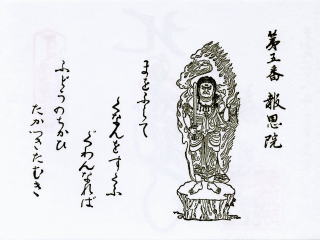 第五番 報恩院
まをふくて
くなんをすくふ
ぐわんなれば
ふどうのちかひ
たかつきたむき